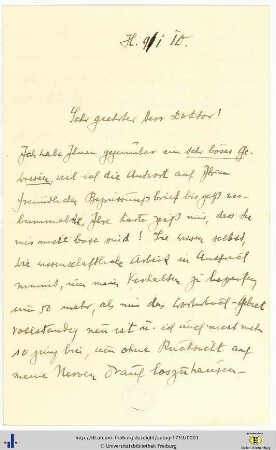 H. 9/I 10.
Sehr geehrter Herr Doktor!
Ich habe Ihnen gegenüber ein sehr böses Ge-
wissen, weil ich die Antwort auf Ihren
freundlichen Begrüssungsbrief bis jetzt ver-
bummelte. Ihre Karte zeigt mir, dass Sie
mir nicht böse sind! Sie wissen selbst,
wie wissenschaftliche Arbeit in Anspruch
nimmt, um mein Verhalten zu begreifen
um so mehr, als mir das Wörterbuch-Gebiet
vollständig neu ist u. ich auch nicht mehr
so jung bin, um ohne Rücksicht auf
meine Nerven drauf loszuhausen
Universitätsbibliothek Freiburg